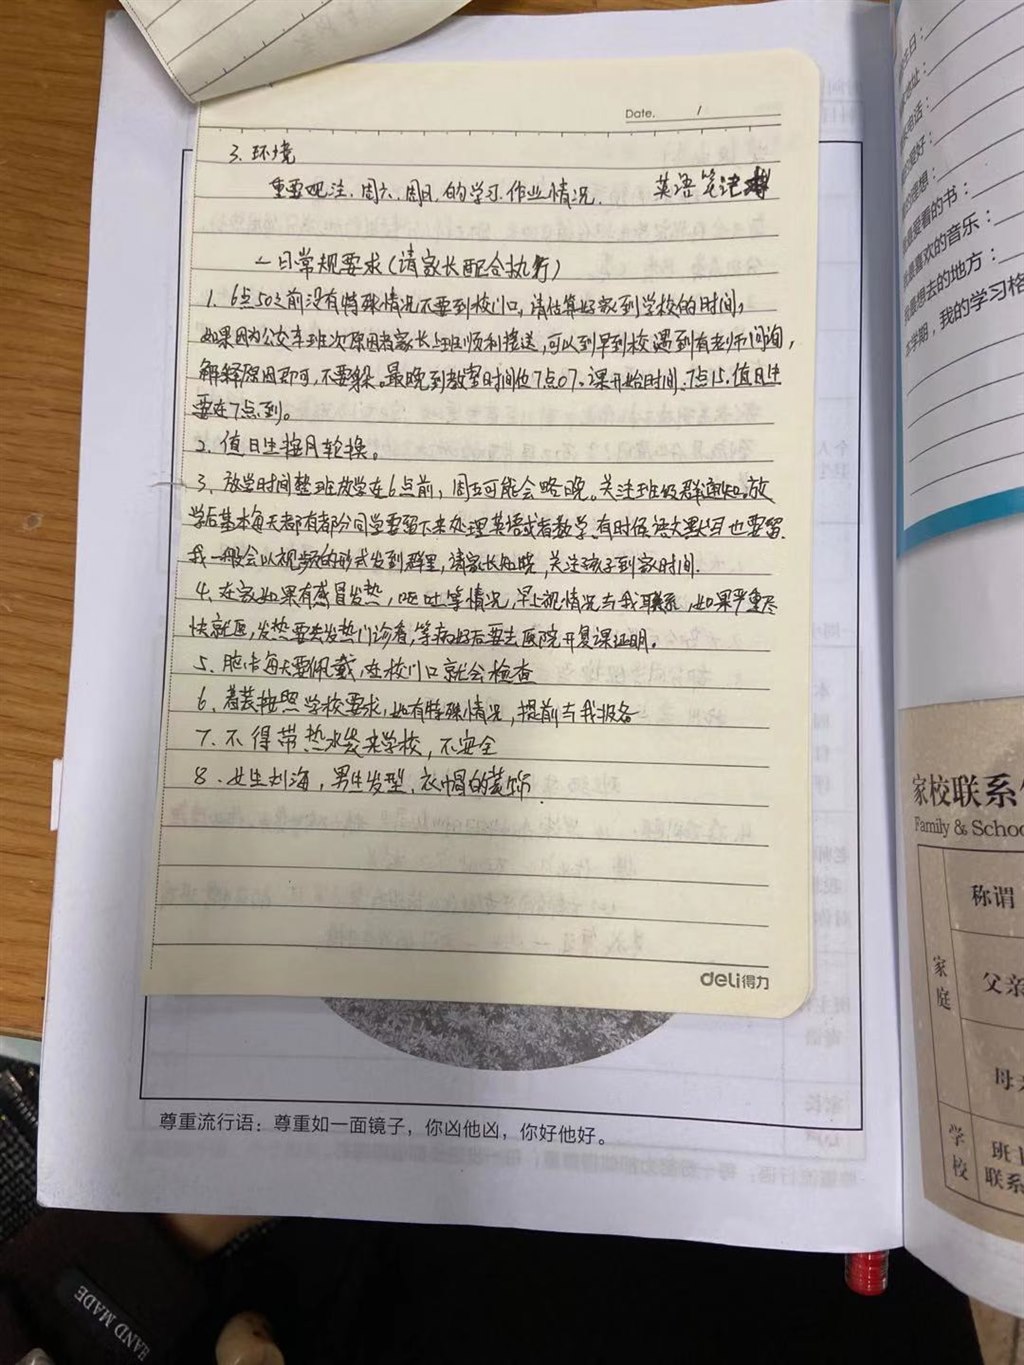 Date. /
3. 环境
重要观注. 周六、周日. 的学习. 作业情况. 英语笔记
一日常规要求(请家长配合执行)
1. 6点50之前没有特殊情况不要到校门口, 请估算好家到学校的时间,
如果因为公交车班次原因者家长上班顺利接送, 可以到早到校遇到有老师问询,
解释原因即可, 不要躲。最晚到教室时间位7点07. 课开始时间. 7点15. 值日生
要在7点到。
2. 值日生按月轮换。
3. 放学时间整班放学在6点前, 周五可能会略晚。关注班级群通知。放
学后基本每天都有部分同学要留下来处理英语或者数学. 有时候语文默写也要留.
我一般会以视频的形式发到群里, 请家长知晓, 关注孩子到家时间.
4. 在家如果有感冒发热, 呕吐等情况, 早上把情况与我联系, 如果严重尽
快就医, 发热要去发热门诊看, 等病好后要去医院开复课证明。
5. 胸卡每天要佩戴, 在校门口就会检查
6. 着装按照学校要求, 如有特殊情况, 提前与我报备
7. 不得带热水袋来学校, 不安全
8. 女生刘海, 男生发型. 衣帽的装饰.
deli得力
尊重流行语：尊重如一面镜子，你凶他凶，你好他好。
生日：
爱看的书：
喜欢的音乐：
想去的地方：
学期，我的学习格
家校联系
Family & Schoo
称谓
家庭
父亲
母亲
学校
班主
联系
HAND MADE